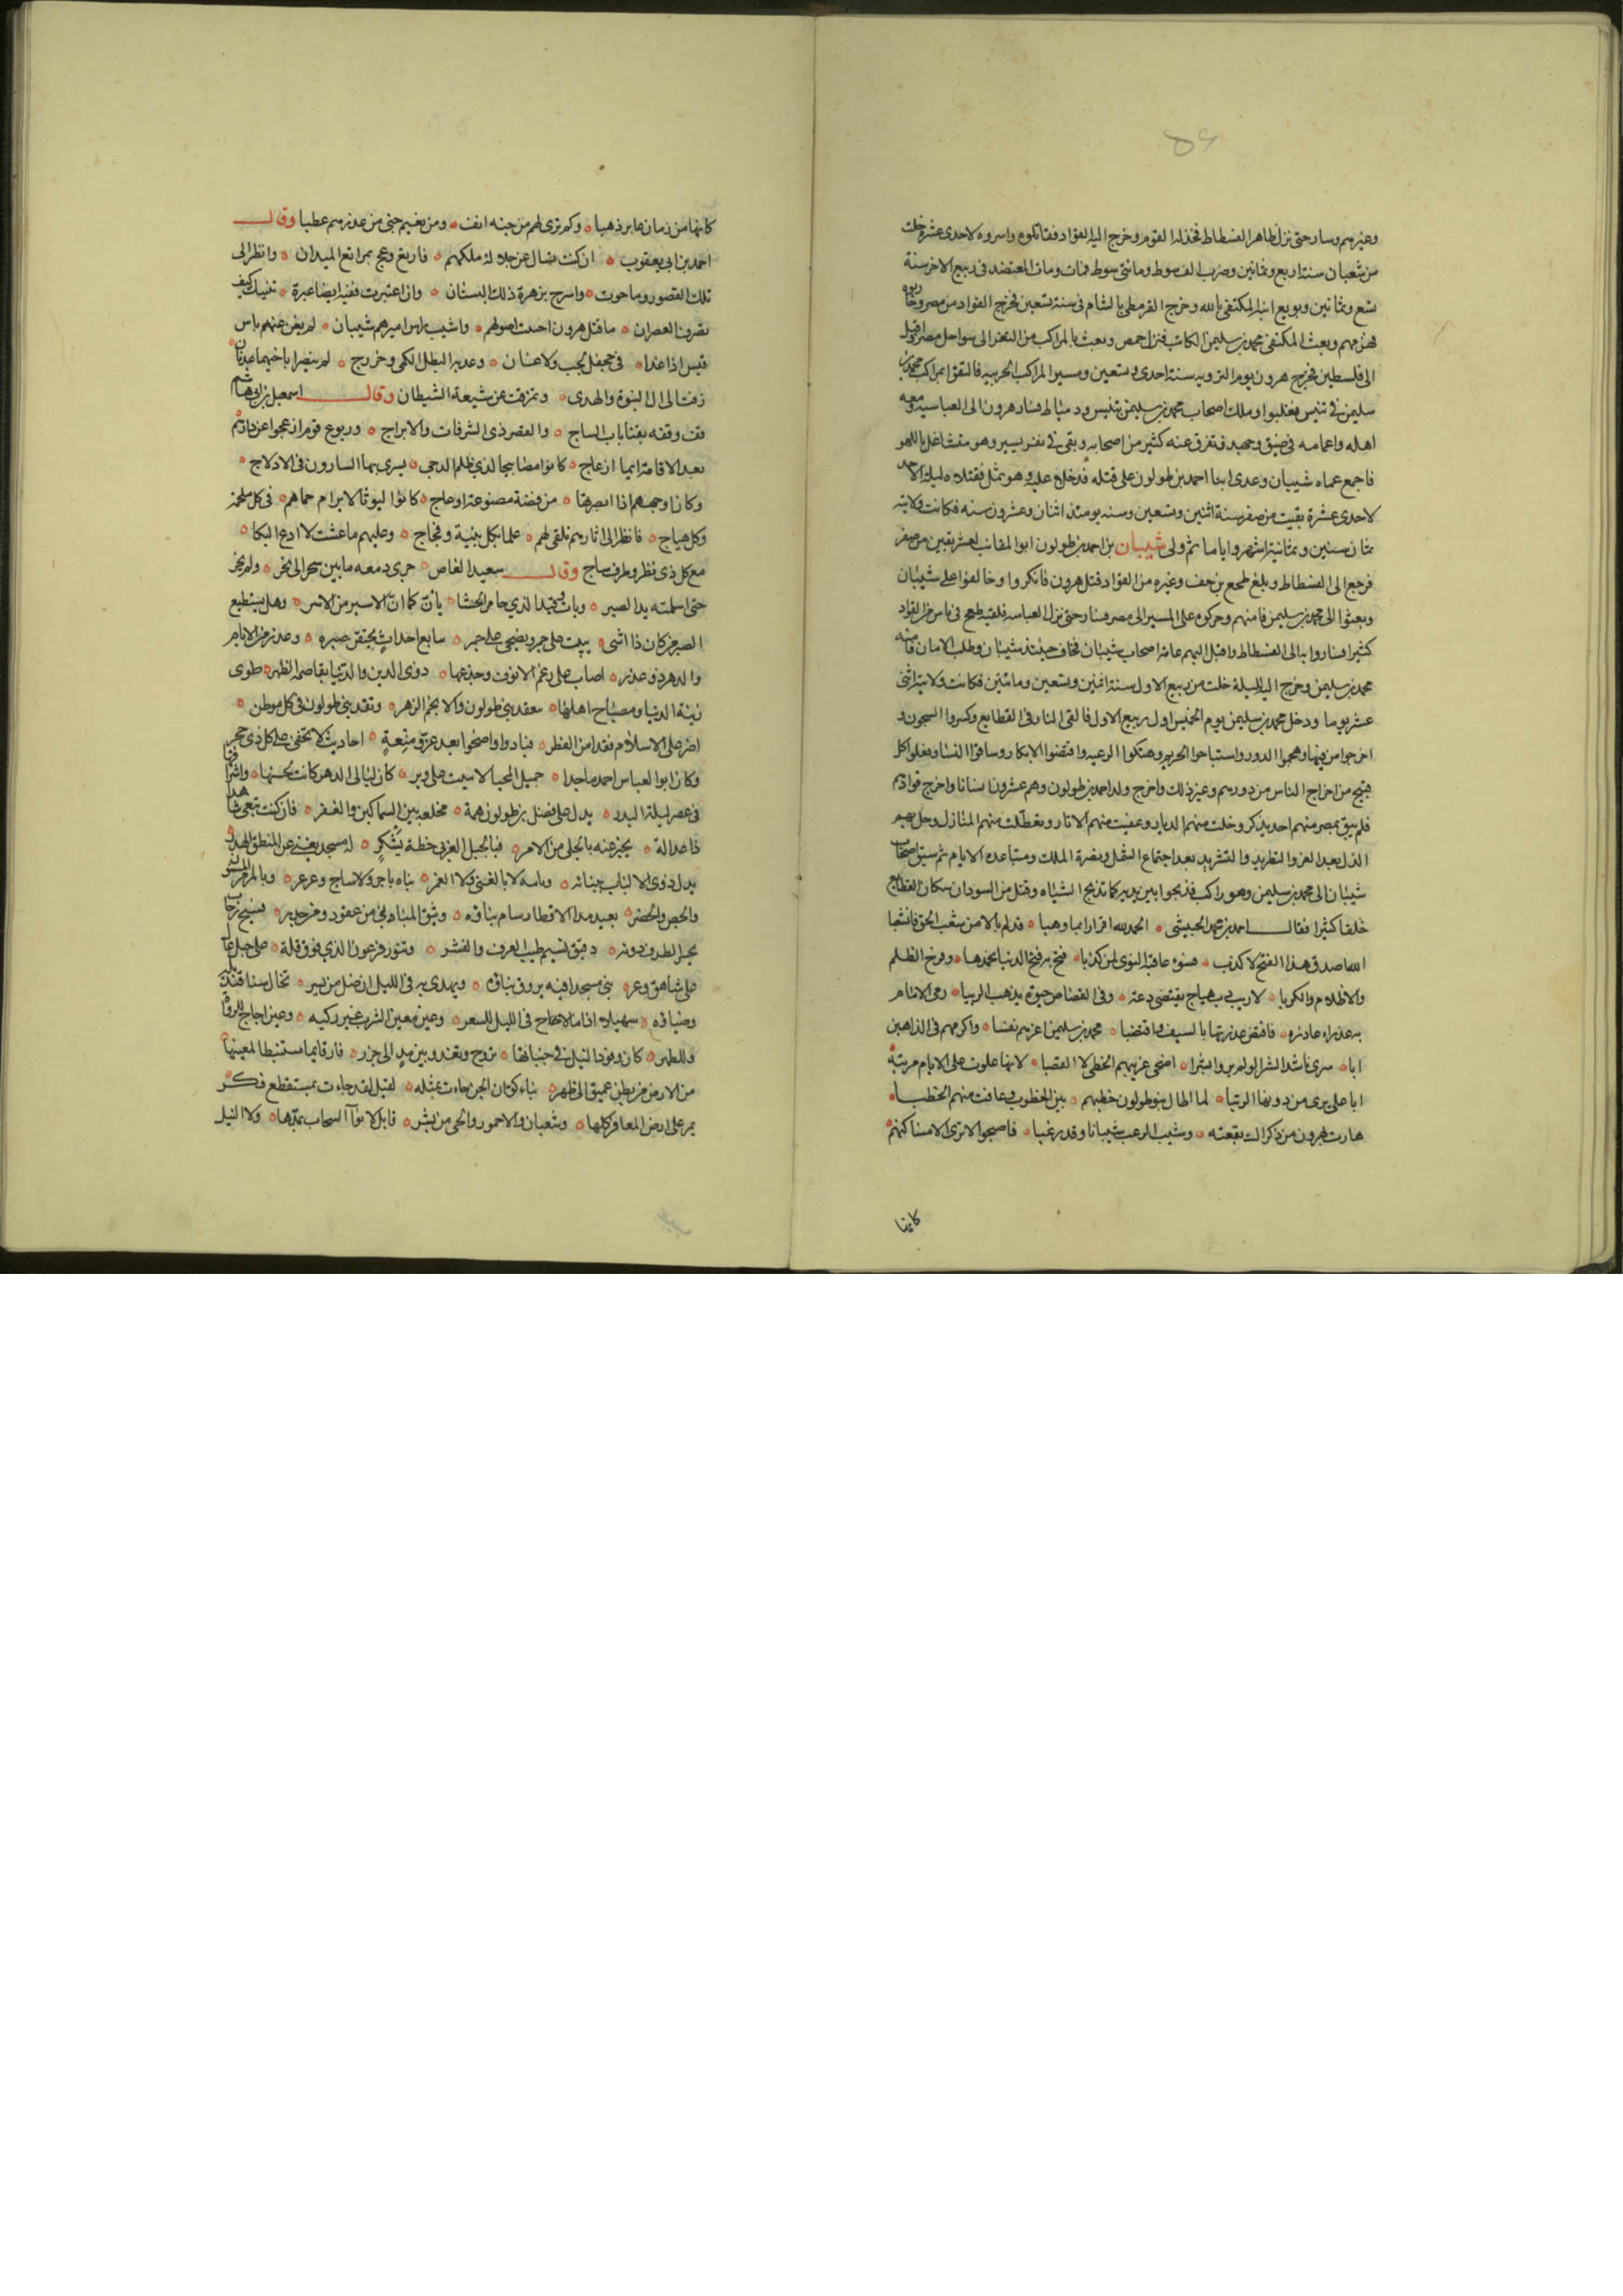 ٥٦
وغيرهم وسار حتى نزل بظاهر الفسطاط فخذله القوم وخرج اليه القواد فقاتلوه واسروه لاحدى عشرة خلت
من شعبان سنة اربع وثمانين وضرب الف سوط ومائتى سوط فمات ومات المعتضد فى ربيع الاخر سنة
تسع وثمانين وبويع ابنه المكتفى بالله وخرج القرمطى بالشام فى سنة تسعين فخرج القواد من مصر وحاربوه
فهزمهم وبعث المكتفى محمد بن سليمن الكاتب فنزل حمص وبعث بالمراكب من الثغر الى سواحل مصر واقبل
الى فلسطين فخرج هرون يوم التروية سنة احدى وتسعين وسير المراكب الحربية فالتقوا بمراكب محمد بن
سليمن فى تنيس فغلبوا وملك اصحاب محمد بن سليمن تنيس ودمياط فسار هرون الى العباسية ومعه
اهله واعمامه فى ضيق وجهد فتفرق عنه كثير من اصحابه وبقى فى نفر يسير وهو متشاغل باللهو
فاجمع عماه شيبان وعدى ابنا احمد بن طولون على قتله فدخلا عليه وهو ثمل فقتلاه ليلة الاحد
لاحدى عشرة بقيت من صفر سنة اثنين وتسعين وسنه يومئذ اثنان وعشرون سنه فكانت ولايته
ثمان سنين وثمانية اشهر واياما ثم ولى شيبان بن احمد بن طولون ابو المقانب لعشر بقين من صفر
فرجع الى الفسطاط وبلغ طغج بن جف وغيره من القواد قتل هرون فانكروا وخالفوا على شيبان
وبعثوا الى محمد بن سليمن فامنهم وحركوه على المسير الى مصر فسار حتى نزل العباسه فلقيه طغج فى ناس من القواد
كثير فساروا به الى الفسطاط واقبل اليهم عامة اصحاب شيبان فخاف حينئذ شيبان وطلب الامان فامنه
محمد بن سليمن وخرج اليه لليلة خلت من ربيع الاول سنة اثنين وتسعين ومائتين فكانت ولايته اثنى
عشر يوما ودخل محمد بن سليمن يوم الخميس اول ربيع الاول فالقى النار فى القطايع وكسروا السجون و
اخرجوا من فيها وهجموا الدور واستباحوا الحريم وهتكوا الرعيه وافتضوا الابكار وساقوا النسا وفعلوا كل
قبيح من اخراج الناس من دورهم وغير ذلك واخرج ولد احمد بن طولون وهم عشرون انسانا واخرج قوادهم
فلم يبق بمصر منهم احد يذكر وخلت منهم الديار وعفيت منهم الاثار وتعطلت منهم المنازل وحل بهم
الذل بعد العز والتطريد والتشريد بعد اجتماع الشمل ونضرة الملك ومساعدة الايام ثم سيق اصحاب
شيبان الى محمد بن سليمن وهو راكب فذبحوا بين يديه كما تذبح الشياه وقتل من السودان سكان القطايع
خلقا كثيرا فقال احمد بن محمد الحبيشى • الحمد لله اقرارا بما وهبا • قد لم بالامن شعب الحق فانشعبا
الله اصدق هذا الفتح لا كذب • فسوء عاقبة المثوى لمن كذبا • فتح به فتح الدنيا محمدها • وفرج الظلم
والاظلام والكربا • لا ريب رب هياج يقتضى دعة • وفى القصاص حيوة يذهب الريبا • رمى الامام
به عذراء غادره • فافتض عذرتها بالسيف واقتضبا • محمد بن سليمن اعزهم نفسا • واكرمهم فى الذاهبين
ابا • سرى باسد الشرا لو لم يروا بشرا • اضحى عرينهم الخطى لا القصبا • لانها علوت على الايام مرتبة •
ابا على يرى من دونها الرتبا • لما اطال بنو طولون خطبهم • بين الخطوب وعافت منهم الخطبا •
هارت بهرون من ذكراك بقعته • وشيب الرعب شيبانا وقد رعبا • فاصبحوا لا ترى الا مساكنهم •
كانها
كانها من زمان غابر ذهبا • وكم ترى لهم من جنه انف • ومن نعيم جنى من غدرهم عطبا وقال
احمد بن ابى يعقوب • ان كنت تسال عن جلالة ملكهم • فاربع وعج بمراتع الميدان • وانظر الى
تلك القصور وما حوت • واسرح بزهرة ذلك البستان • وان اعتبرت ففيه ايضا عبرة • تنبيك كيف
تصرف العصران • ما قتل هرون اجتث اصولهم • واشيب راس اميرهم شيبان • لم يغن عنهم باس
قيس اذ غدا • فى جحفل لجب ولا غسان • وعديه البطل الكمى وخزرج • لم ينصرا باخيهما عدنان •
زفت الى ال النبوة والهدى • وتمزقت عن شيعة الشيطان وقال اسمعيل بن ابى هاشم
قف وقفه بفنا باب الساج • والقصر ذى الشرفات والابراج • وربوع قوم ازعجوا عن دارهم
بعد الاقامة ايما ازعاج • كانوا مصابيحا لدى ظلم الدجى • يسرى بها السارون فى الادلاج •
وكان اوجههم اذا ابصرتها • من فضة مصنوعة او عاج • كانوا ليوثا لا يرام حماهم • فى كل ملحمة
وكل هياج • فانظر الى اثارهم تلقى لهم • علما بكل ثنية وفجاج • وعليهم ما عشت لا ادع البكا •
مع كل ذى نظر وطرف ساج وقال سعيد القاص • جرى دمعه ما بين سحر الى نحر • ولم يجر
حتى اسلمته يد الصبر • وبات وقيدا للذى خامر الحشا • يان كما ان الاسير من الاسر • وهل يستطيع
الصبر من كان ذا اسى • يبيت على جمر ويضحى على جمر • تتابع احداث تحيفن صبره • وغدر من الايام
والدهر ذو غدر • اصاب على رغم الانوف وجدعها • ذوى الدين والدنيا بقاصمة الظهر • طوى
زينة الدنيا ومصباح اهلها • بفقد بنى طولون والانجم الزهر • وفقد بنى طولون فى كل موطن •
امر على الاسلام فقدا من القطر • فبادوا واضحوا بعد عز ومنعة • احاديث لا تخفى على كل ذى حجر
وكان ابو العباس احمد ماجدا • جميل المحيا لا يبيت على وتر • كان ليالى الدهر كانت لحسنها • واشراقها
فى عصره ليلة البدر • يدل على فضل بن طولون همة • محلقة بين السماكين والغفر • فان كنت تبغى شاهدا
ذا عدالة • يخبر عنه بالجلى من الامر • فبالجبل الغربى خطة يشكر • له مسجد يغنى عن المنطق الهدر •
يدل ذوى الالباب بنيانه • وبانيه لا بالغنى ولا الغمر • بناه باجر ولا ساج وعرعر • وبالمرمر المسنون
والجص والصخر • بعيد مدا الاقطار سام بناؤه • وثيق المبانى من عقود ومن جدر • فسيح رحاب
يحسر الطرف دونه • رقيق نسيم طيب العرف والنشر • وتنور فرعون الذى فوق قلة • على جبل عال
على شاهق وعر • بنى مسجدا فيه يروق بناؤه • ويهدى به فى الليل ان ضل من يسر • تخال سنا قنديله
وضياؤه • سهيلا اذا ما لاح فى الليل للسفر • وعين معين الشرب غير ركيه • وعين اجاج للرواة
وللطهر • كان وفود النيل فى جنباتها • تروح وتغدو بين مد الى جزر • فارك بها مستنبطا لمعينها •
من الارض من بطن عميق الى ظهر • بناء لو ان الجن جاءت بمثله • لقيل لقد جاءت بمستفظع نكر
يمر على ارض المعافر كلها • وشعبان والاحمور والحى من بشر • قبائل لا نوء السحاب يمدها • ولا النيل